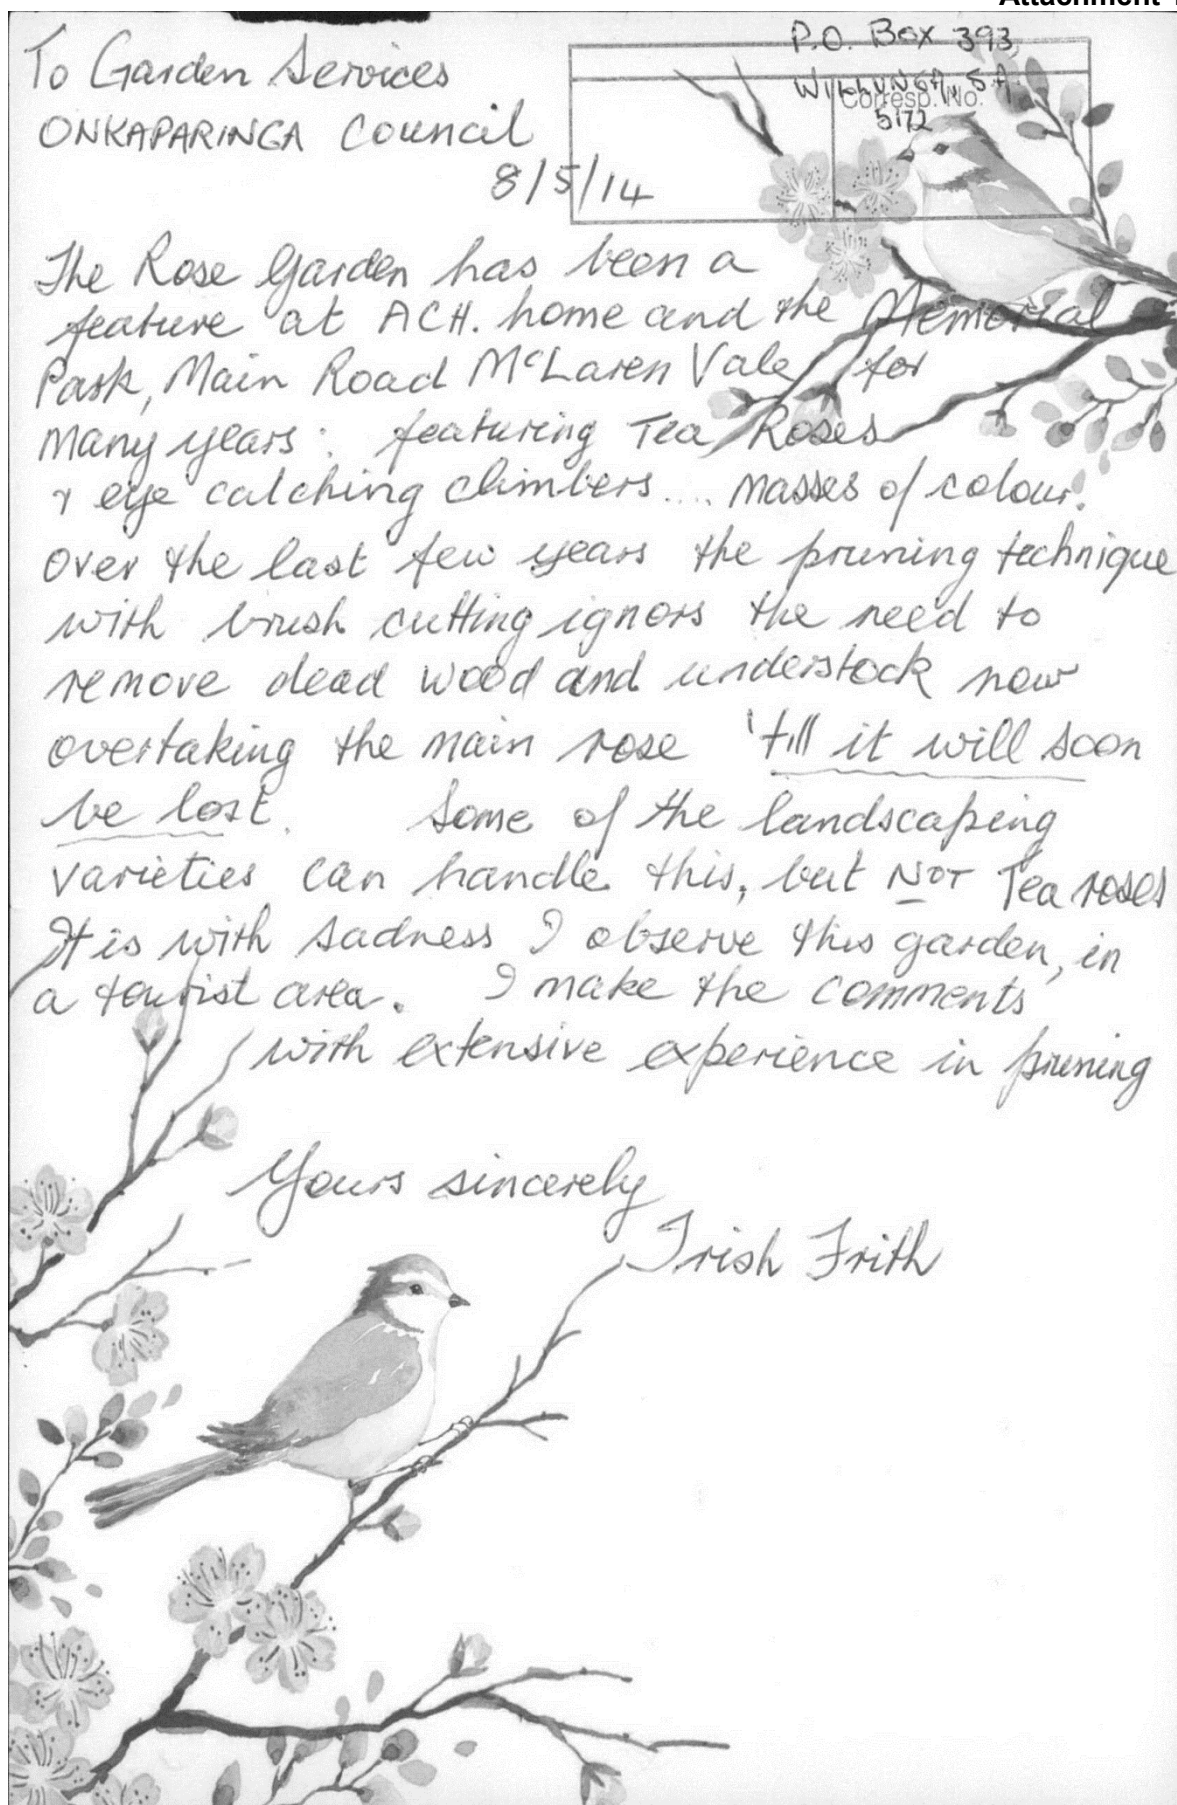 Attachment
P.O. Box 393,
WILLUNGA, S.A.
Corresp. No.
5172
To Garden Services
ONKAPARINGA Council
8/5/14
The Rose Garden has been a
feature at ACH. home and the Memorial
Park, Main Road McLaren Vale for
many years: featuring Tea Roses
& eye catching climbers .... masses of colour!
Over the last few years the pruning technique
with brush cutting ignors the need to
remove dead wood and understock now
overtaking the main rose 'till it will soon
be lost. Some of the landscaping
varieties can handle this, but NOT Tea roses
It is with sadness I observe this garden, in
a tourist area. I make the comments
with extensive experience in pruning
Yours sincerely
Trish Frith